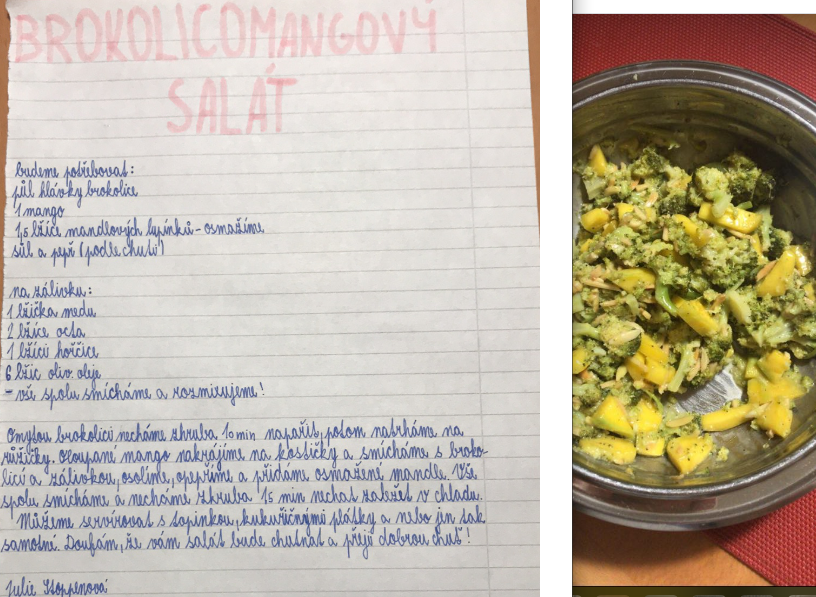 BROKOLICOMANGOVÝ
SALÁT
budeme potřebovat:
půl hlávky brokolice
1 mango
1,5 lžíce mandlových lupínků - osmažíme
sůl a pepř (podle chuti)
na zálivku:
1 lžička medu
2 lžíce octa
1 lžíci hořčice
6 lžic oliv. oleje
- vše spolu smícháme a rozmixujeme!
Omytou brokolici necháme zhruba 10 min napařit, potom natrháme na
růžičky. Oloupané mango nakrájíme na kostičky a smícháme s broko-
licí a zálivkou, osolíme, opepříme a přidáme osmažené mandle. Vše
spolu smícháme a necháme zhruba 15 min nechat zaležet v chladu.
Můžeme servírovat s topinkou, kukuřičnými plátky a nebo jen tak
samotné. Doufám, že vám salát bude chutnat a přeji dobrou chuť!
Julie